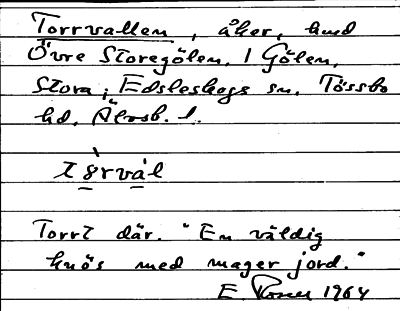 Torrvallen, åker, hmd
Övre Storegölen, 1 Gölen,
Stora, Edsleskogs sn. Tössbo
hd, Älvsb. l.
Torrt där. "En väldig
knös med mager jord."
E. 1964